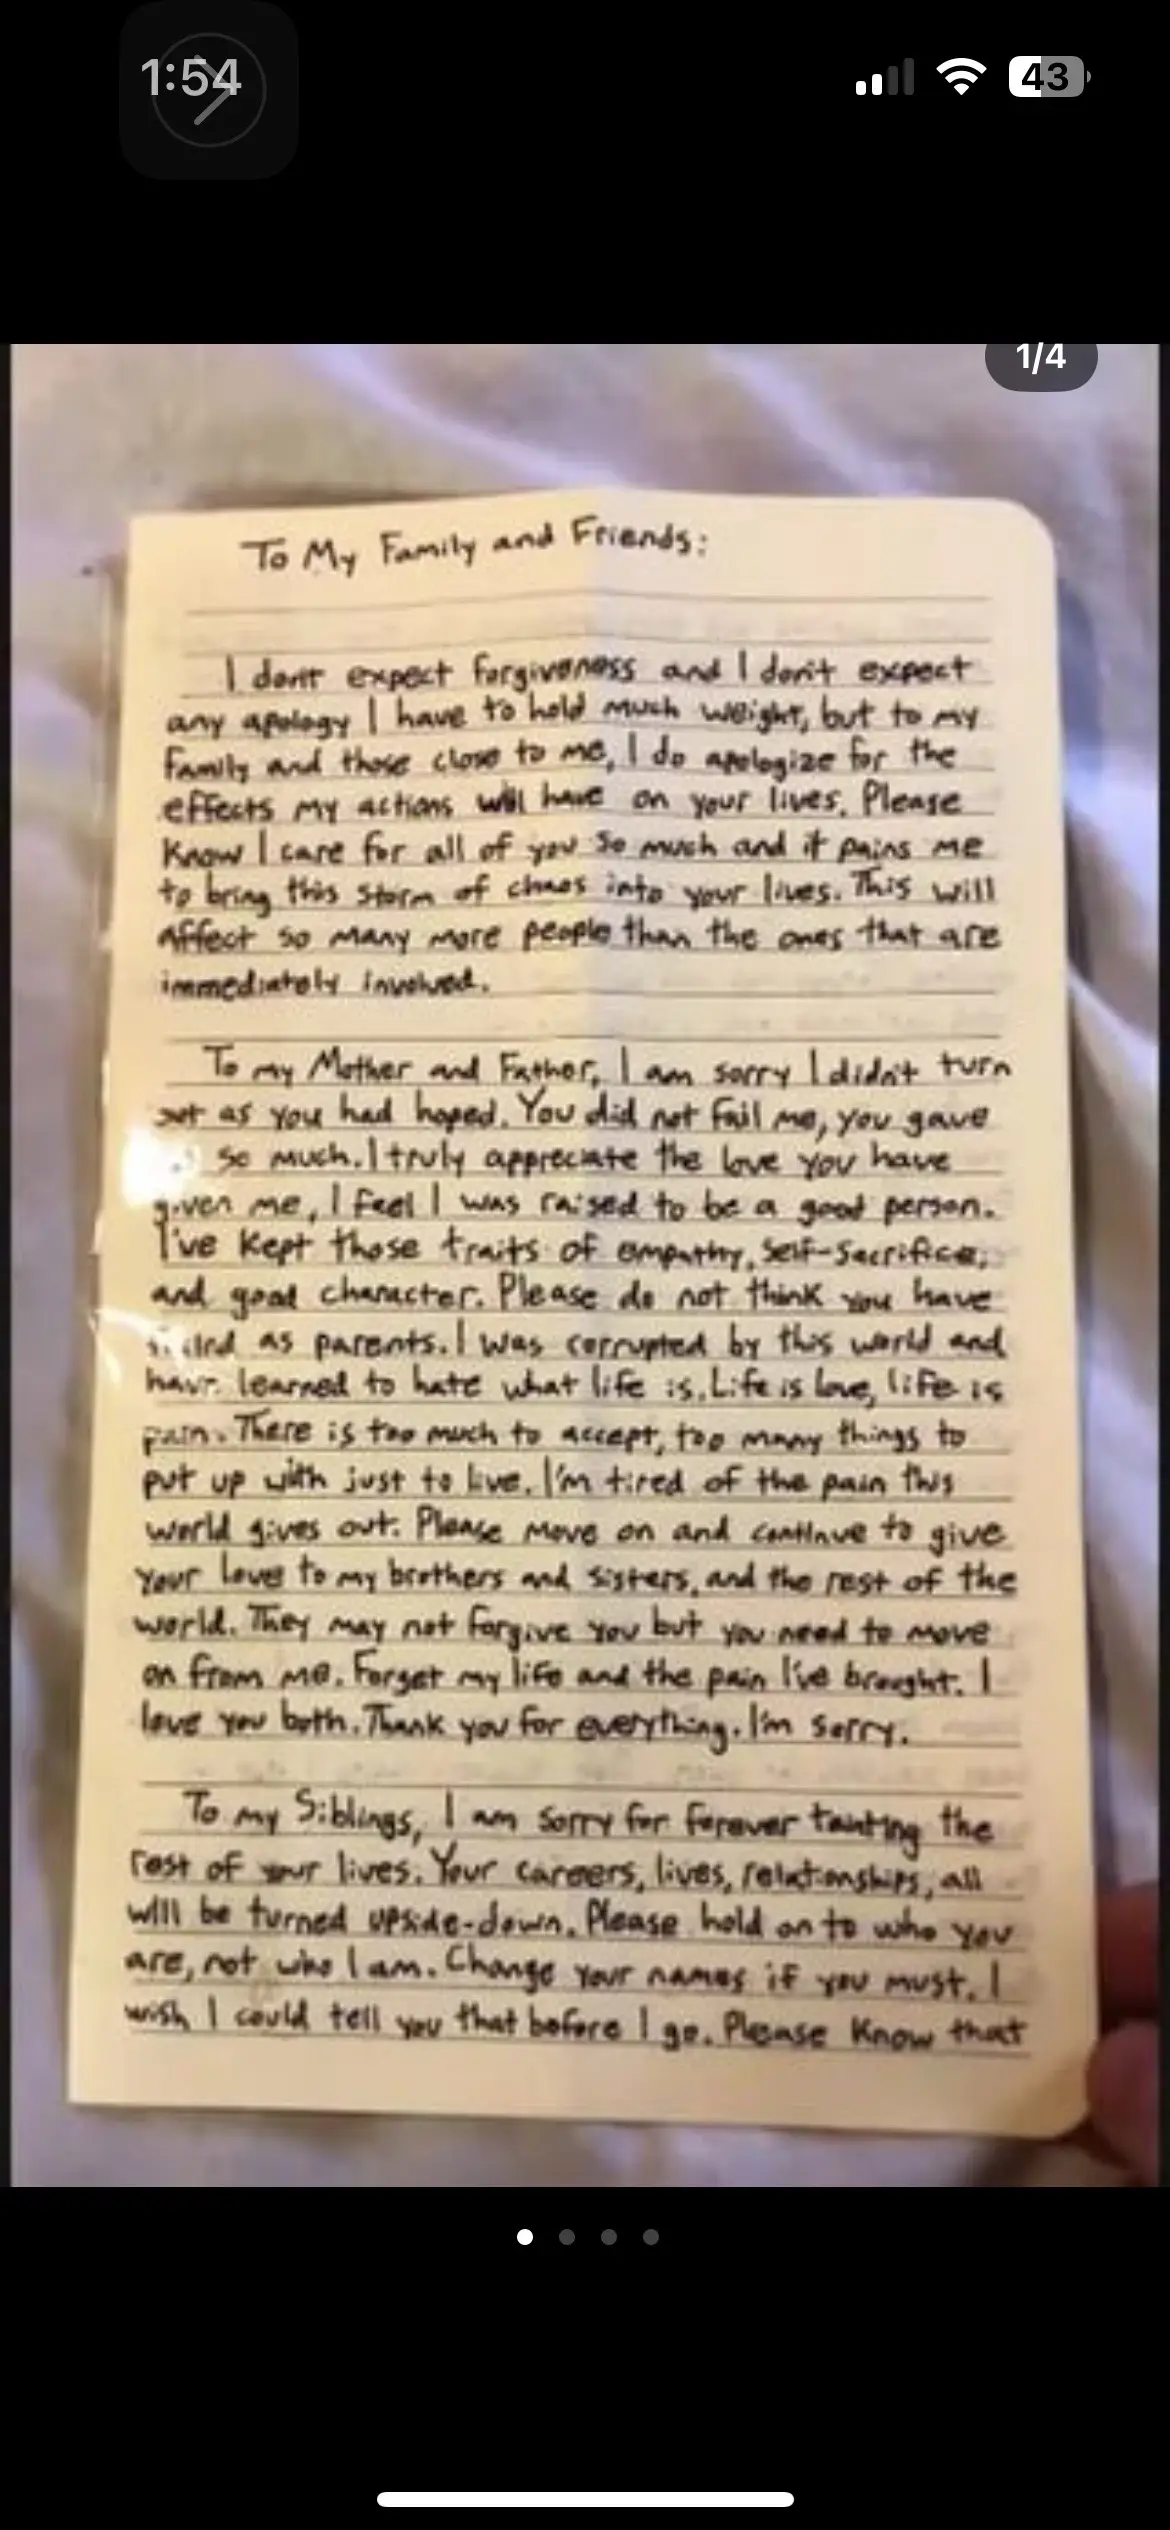 1:54
43
1/4
To My Family and Friends:
I don't expect forgiveness and I don't expect
any apology I have to hold much weight, but to my
family and those close to me, I do apologize for the
effects my actions will have on your lives. Please
Know I care for all of you so much and it pains me
to bring this storm of chaos into your lives. This will
Affect so many more people than the ones that are
immediately involved.
To my Mother and Father, I am sorry I didn't turn
out as you had hoped. You did not fail me, you gave
so much. I truly appreciate the love you have
given me, I feel I was raised to be a good person.
I've Kept those traits of empathy, self-sacrifice,
and good character. Please do not think you have
as parents. I was corrupted by this world and
have learned to hate what life is. Life is love, life is
pain. There is too much to accept, too many things to
put up with just to live. I'm tired of the pain this
world gives out. Please move on and continue to give
your love to my brothers and sisters, and the rest of the
world. They may not forgive you but you need to move
on from me. Forget my life and the pain I've brought. I
love you both. Thank you for everything. I'm sorry.
To my Siblings, I am sorry for forever tainting the
rest of your lives. Your careers, lives, relationships, all
will be turned upside-down. Please hold on to who you
are, not who I am. Change your names if you must. I
wish I could tell you that before I go. Please Know that